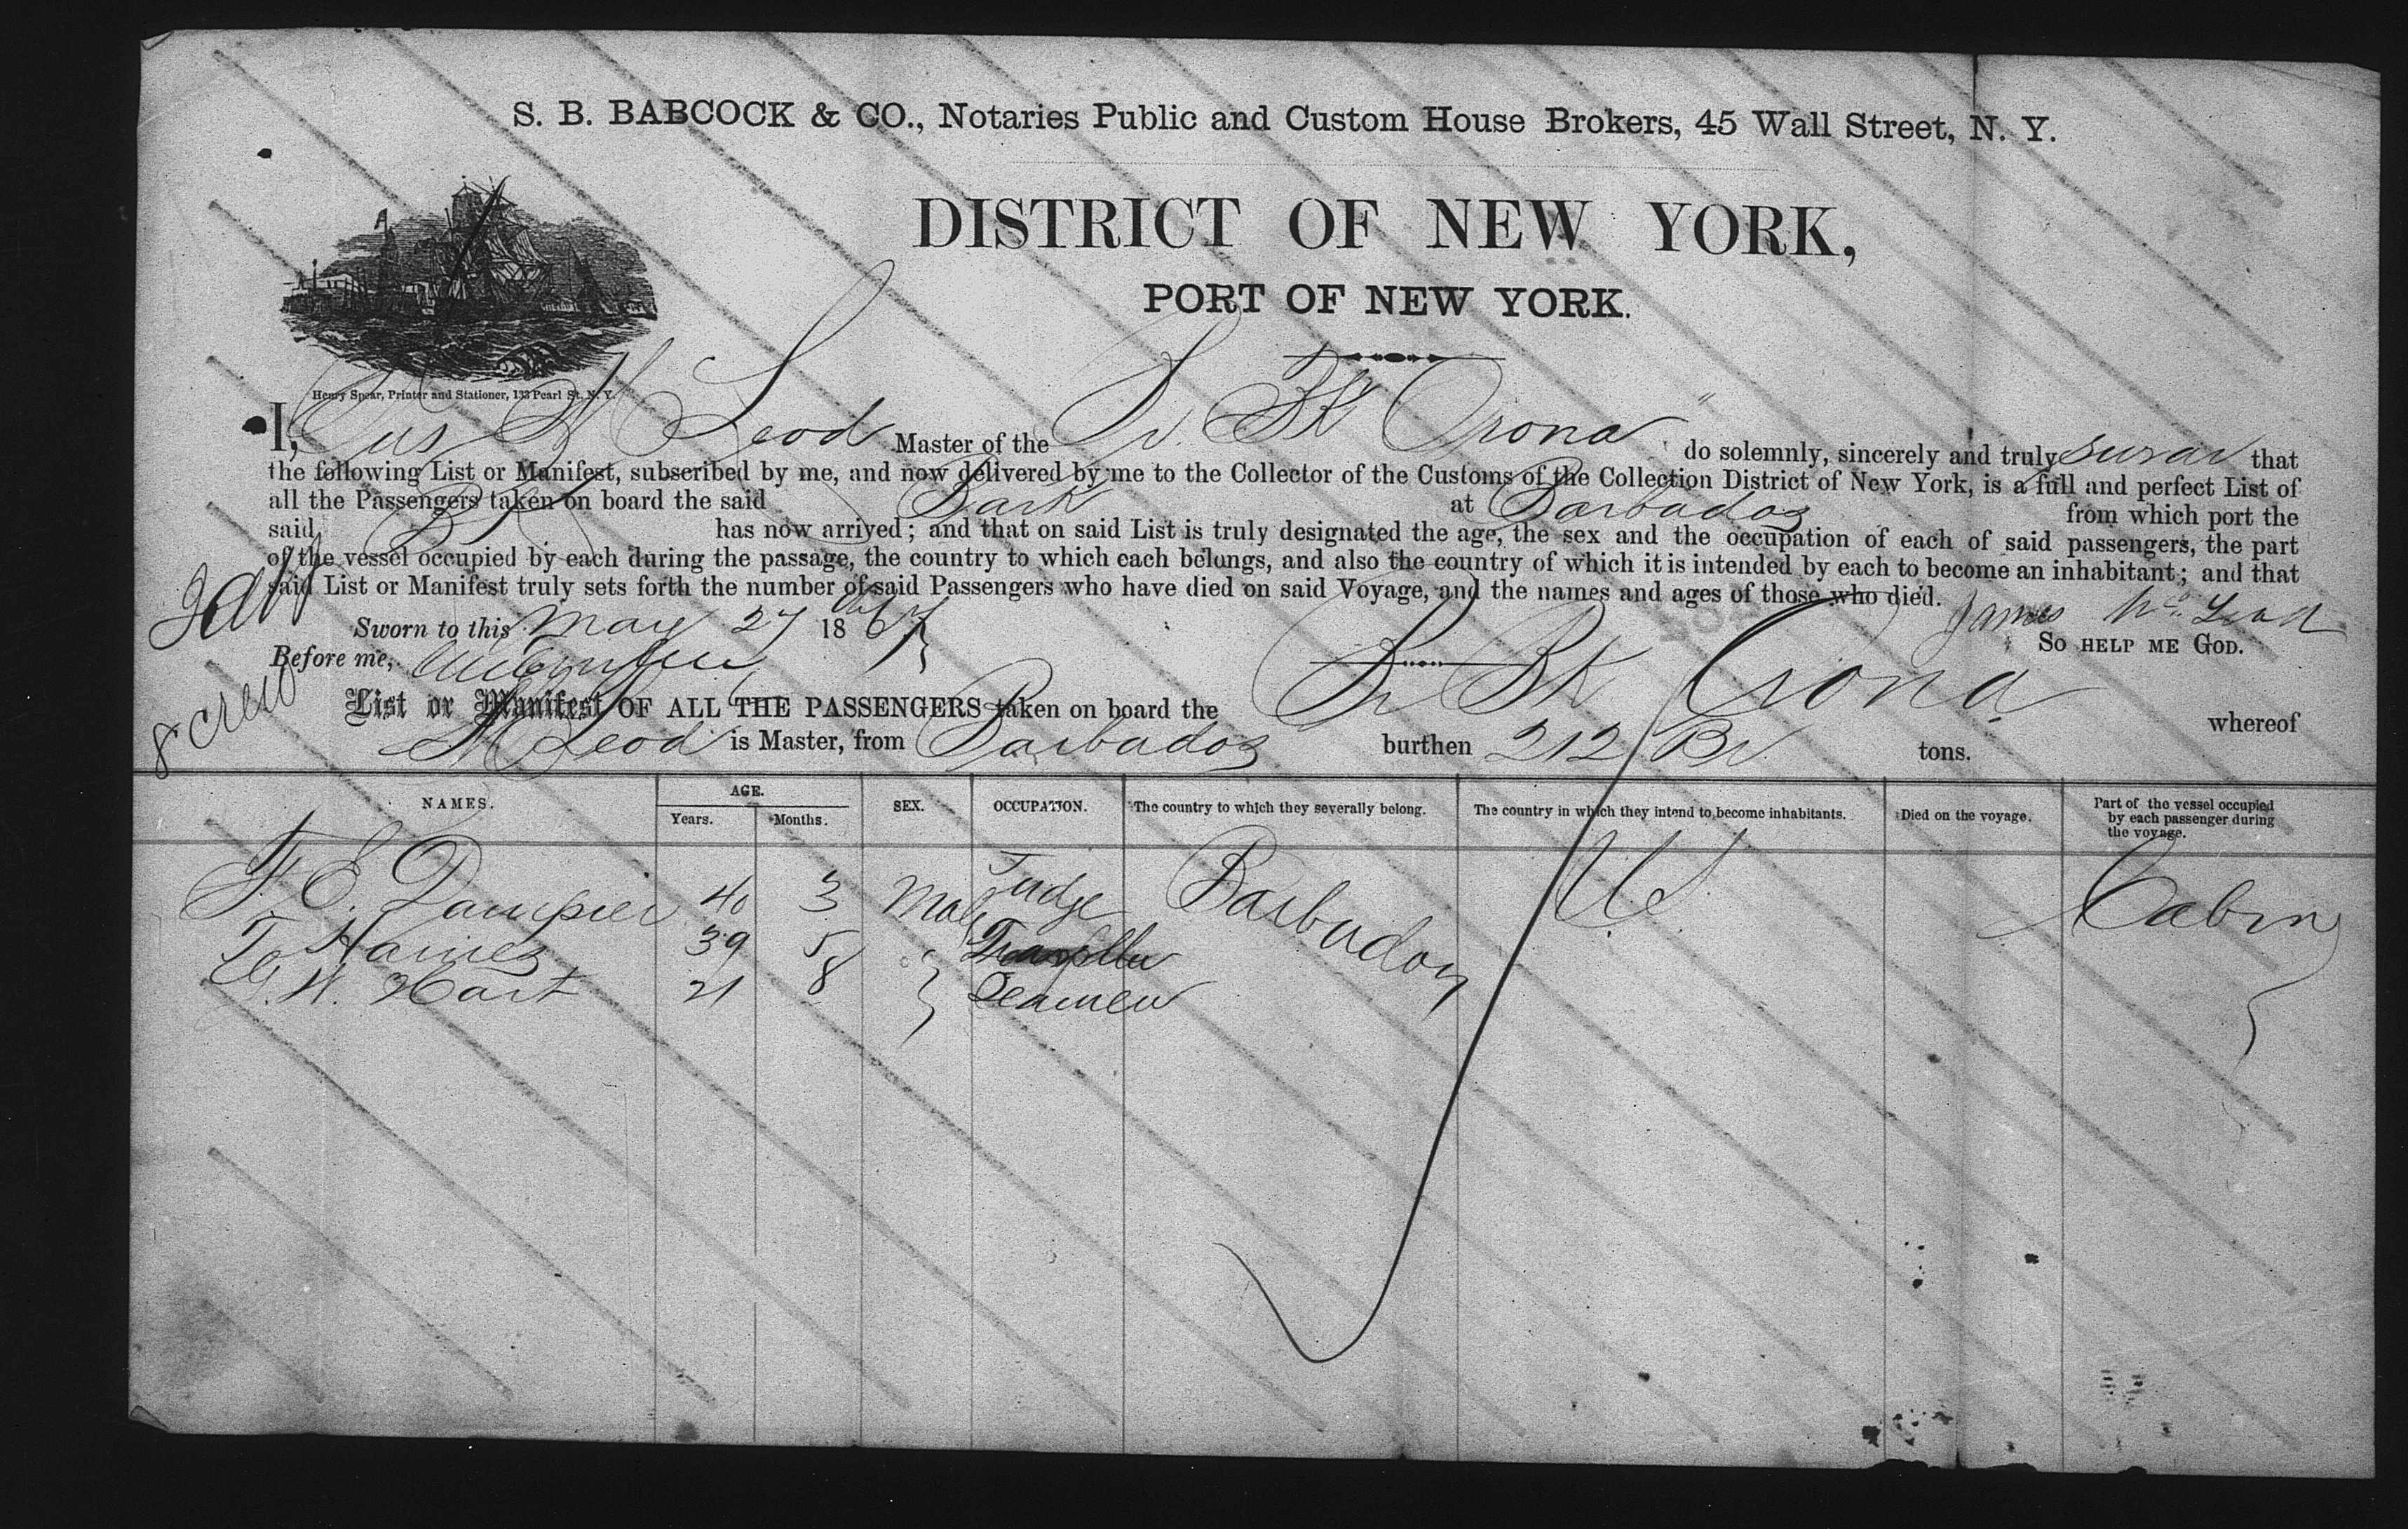 S. B. BABCOCK & CO., Notaries Public and Custom House Brokers, 45 Wall Street, N. Y.
DISTRICT OF NEW YORK,
PORT OF NEW YORK.
Henry Spear, Printer and Stationer, 133 Pearl St. N. Y.
I, Jas McLeod Master of the Br. Bk "Orona" do solemnly, sincerely and truly swear that
the following List or Manifest, subscribed by me, and now delivered by me to the Collector of the Customs of the Collection District of New York, is a full and perfect List of
all the Passengers taken on board the said Bark at Barbados from which port the
said Bk has now arrived; and that on said List is truly designated the age, the sex and the occupation of each of said passengers, the part
of the vessel occupied by each during the passage, the country to which each belongs, and also the country of which it is intended by each to become an inhabitant; and that
said List or Manifest truly sets forth the number of said Passengers who have died on said Voyage, and the names and ages of those who died.
Sworn to this May 27 1867
James McLeod
SO HELP ME GOD.
Before me,
8 crew
List or Manifest OF ALL THE PASSENGERS taken on board the Br Bk Orona whereof
McLeod is Master, from Barbados burthen 212 Br. tons.
NAMES. AGE. Years. Months. SEX. OCCUPATION. The country to which they severally belong. The country in which they intend to become inhabitants. Died on the voyage. Part of the vessel occupied by each passenger during the voyage.
F. E. Dampier 40 3 Male Judge Barbados US Cabin
T. Haines 39 5
G. H. Hart 21 8 Seamen